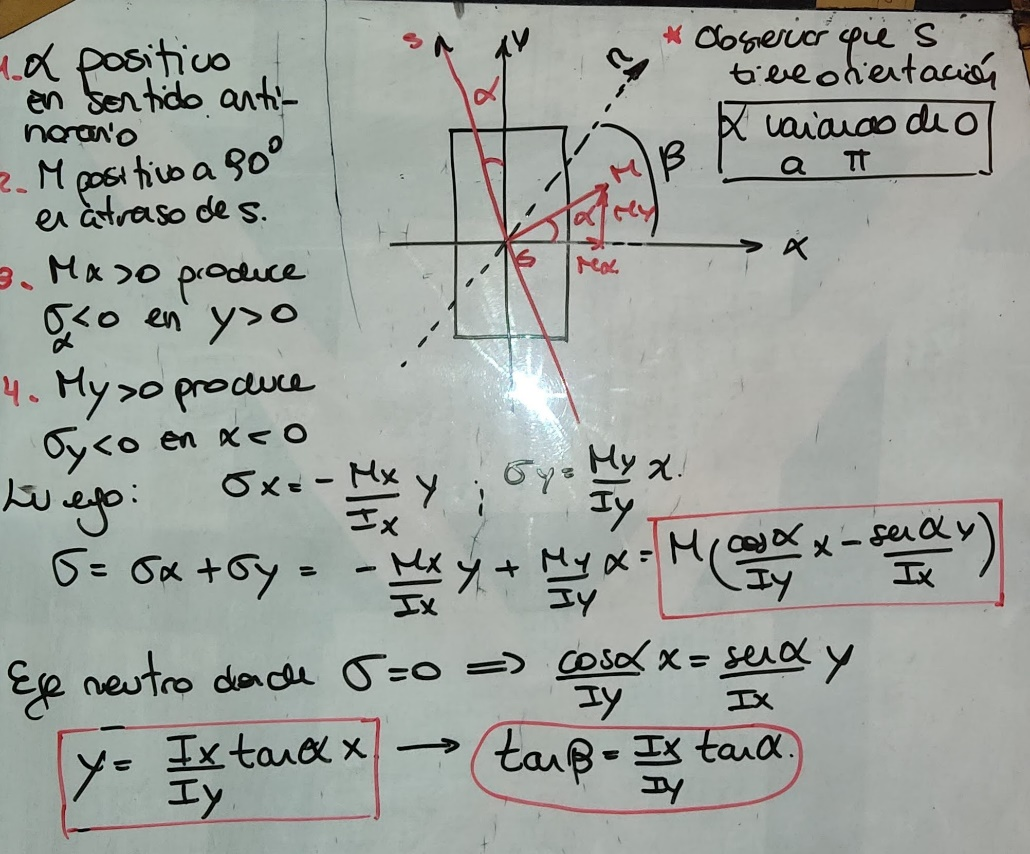 1. α positivo
en sentido anti-
horario
2. M positivo a 90°
en atraso de s.
3. Mx >0 produce
σx<0 en y>0
4. My >0 produce
σy<0 en x<0
s
y
α
n
β
M
α
My
Mx
s
x
* Observar que s
tiene orientación
α variando de 0
a π
Luego: σx = - Mx/Ix y ; σy = My/Iy x.
σ = σx + σy = - Mx/Ix y + My/Iy x = M(cosα/Iy x - senα/Ix y)
Eje neutro donde σ=0 ⇒ cosα/Iy x = senα/Ix y
y = Ix/Iy tanα x → tanβ = Ix/Iy tanα.